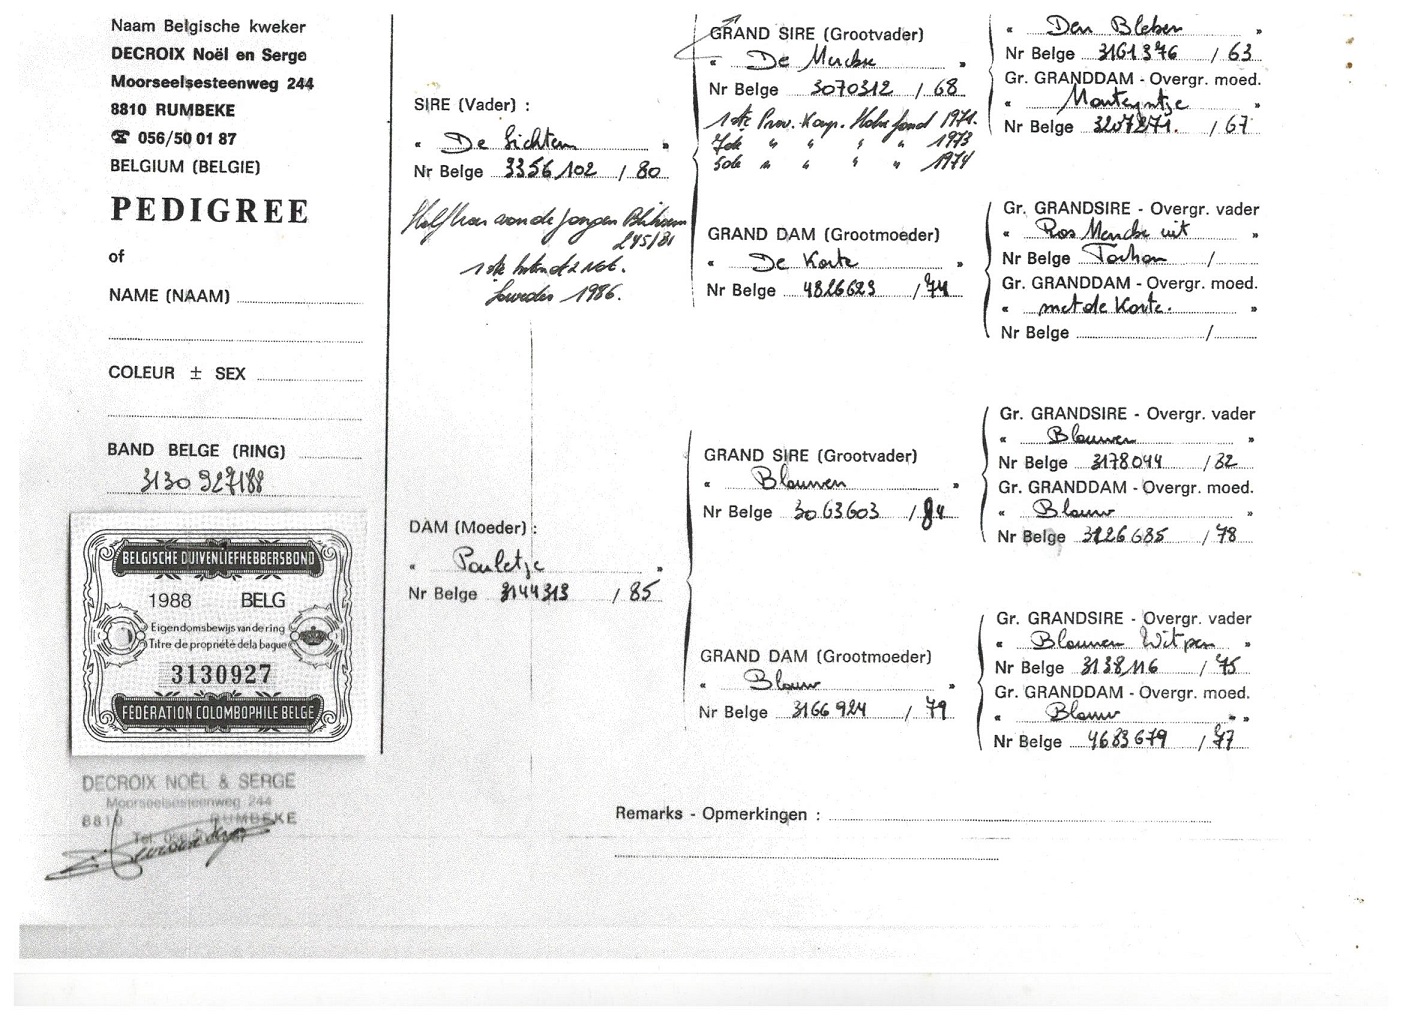 Naam Belgische kweker
DECROIX Noël en Serge
Moorseelsesteenweg 244
8810 RUMBEKE
☎ 056/50 01 87
BELGIUM (BELGIE)
PEDIGREE
of
NAME (NAAM)
COLEUR ± SEX
BAND BELGE (RING)
3130 927/88
BELGISCHE DUIVENLIEFHEBBERSBOND
1988 BELG
Eigendomsbewijs van de ring
Titre de propriété de la bague
3130927
FÉDÉRATION COLOMBOPHILE BELGE
DECROIX NOËL & SERGE
Moorseelsesteenweg 244
8810 RUMBEKE
Tel.
SIRE (Vader) :
« De Lichten »
Nr Belge 3356102 / 80
van de jongen
245/81
1ste
Lourdes 1986.
DAM (Moeder) :
« Pouletje »
Nr Belge 3144313 / 85
GRAND SIRE (Grootvader)
« De »
Nr Belge 3070312 / 68
1ste Prov. Kamp. Halve fond 1971.
7de " " " " 1973
5de " " " " 1974
GRAND DAM (Grootmoeder)
« De Korte »
Nr Belge 4826623 / 74
GRAND SIRE (Grootvader)
« Blauwen »
Nr Belge 3063603 / 84
GRAND DAM (Grootmoeder)
« Blauw »
Nr Belge 3166924 / 79
« Den »
Nr Belge 3161376 / 63
Gr. GRANDDAM - Overgr. moed.
« »
Nr Belge 3207271. / 67
Gr. GRANDSIRE - Overgr. vader
« Ros uit »
Nr Belge /
Gr. GRANDDAM - Overgr. moed.
« met de Korte. »
Nr Belge /
Gr. GRANDSIRE - Overgr. vader
« Blauwen »
Nr Belge 3178044 / 82
Gr. GRANDDAM - Overgr. moed.
« Blauw »
Nr Belge 3126685 / 78
Gr. GRANDSIRE - Overgr. vader
« Blauwen Witpen »
Nr Belge 3138116 / 75
Gr. GRANDDAM - Overgr. moed.
« Blauw »
Nr Belge 4683679 / 77
Remarks - Opmerkingen :